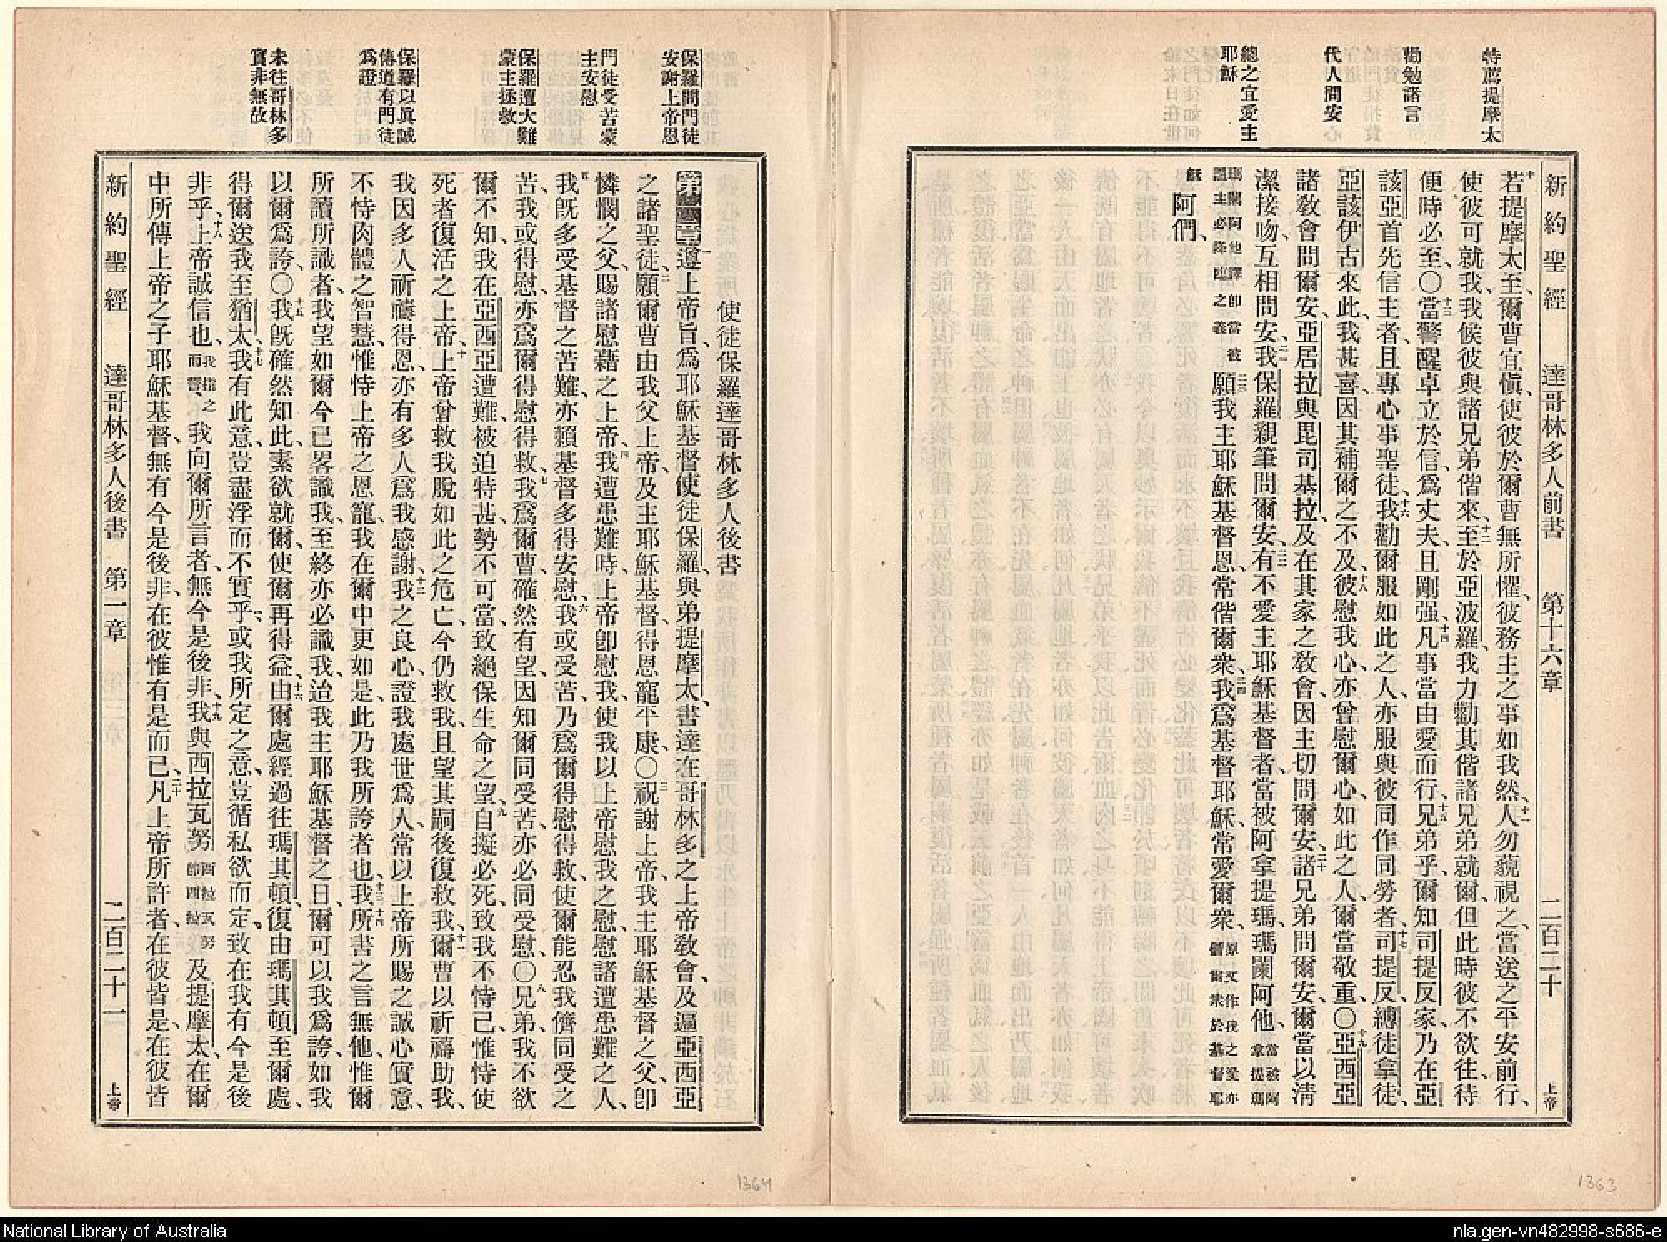 特薦提摩太
勸勉諸言
代人問安
總之宜愛主
耶穌
新約聖經 達哥林多人前書 第十六章 二百二十 上帝
十若提摩太至爾曹宜愼、使彼於爾曹無所懼、彼務主之事如我然、十一人勿藐視之、當送之平安前行、
使彼可就我、我候彼與諸兄弟偕來、十二至於亞波羅、我力勸其偕諸兄弟就爾、但此時彼不欲往、待
便時必至〇十三當警醒、卓立於信、爲丈夫、且剛强、十四凡事當由愛而行、十五兄弟乎、爾知司提反家、乃在亞
該亞首先信主者、且專心事聖徒、十六我勸爾服如此之人、亦服與彼同作同勞者、十七司提反、縛徒拿徒、
亞該伊古來此、我甚喜、因其補爾之不及、十八彼慰我心、亦曾慰爾心、如此之人、爾當敬重〇十九亞西亞
諸敎會問爾安、亞居拉與毘司基拉、及在其家之敎會、因主切問爾安、二十諸兄弟問爾安、爾當以清
潔接吻、互相問安、二一我保羅親筆問爾安、二二有不愛主耶穌基督者、當被阿拿提瑪、瑪闌阿他、當被阿拿提瑪
瑪闌阿他譯卽當被詛主必降臨之義二三願我主耶穌基督恩、常偕爾衆、二四我爲基督耶穌常愛爾衆、原文作我之愛亦偕爾衆於基督耶
穌阿們、
1363
保羅問門徒
安謝上帝恩
門徒受苦蒙
主安慰
保羅遭大難
蒙主拯救
保羅以眞誠
傳道有門徒
爲證
未往哥林多
實非無故
使徒保羅達哥林多人後書
第一章一遵上帝旨、爲耶穌基督使徒保羅、與弟提摩太、書達在哥林多之上帝敎會、及遍亞西亞
之諸聖徒、二願爾曹由我父上帝、及主耶穌基督、得恩寵平康〇三祝謝上帝、我主耶穌基督之父、卽
憐憫之父、賜諸慰藉之上帝、四我遭患難時、上帝卽慰我、使我以上帝慰我之慰、慰諸遭患難之人、
五我旣多受基督之苦難、亦賴基督多得安慰、六我或受苦、乃爲爾得慰得救、使爾能忍我儕同受之
苦、我或得慰、亦爲爾得慰得救、七我爲爾曹、確然有望、因知爾同受苦、亦必同受慰、〇八兄弟、我不欲
爾不知、我在亞西亞遭難、被迫特甚、勢不可當、致絕保生命之望、九自擬必死、致我不恃己、惟恃使
死者復活之上帝、十上帝曾救我脫如此之危亡、今仍救我、我且望其嗣後復救我、十一爾曹以祈禱助我、
我因多人祈禱得恩、亦有多人爲我感謝、十二我之良心、證我處世爲人、常以上帝所賜之誠心實意、
不恃肉體之智慧、惟恃上帝之恩寵、我在爾中更如是、此乃我所誇者也、十三十四我所書之言無他、惟爾
所讀所識者、我望如爾今已畧識我、至終亦必識我、迨我主耶穌基督之日、爾可以我爲誇、如我
以爾爲誇〇十五我旣確然知此、素欲就爾、使爾再得益、十六由爾處經過、往瑪其頓、復由瑪其頓至爾處、
得爾送我至猶太、十七我有此意、豈盡浮而不實乎、或我所定之意、豈循私欲而定、致在我有今是後
非乎、十八上帝誠信也、我指之而誓、我向爾所言者、無今是後非、十九我與西拉瓦努西拉瓦努卽西拉及提摩太、在爾
中所傳上帝之子耶穌基督、無有今是後非、在彼惟有是而已、二十凡上帝所許者、在彼皆是、在彼皆
新約聖經 達哥林多人後書 第一章 二百二十一 上帝
1364
National Library of Australia
nla.gen-vn482998-s686-e